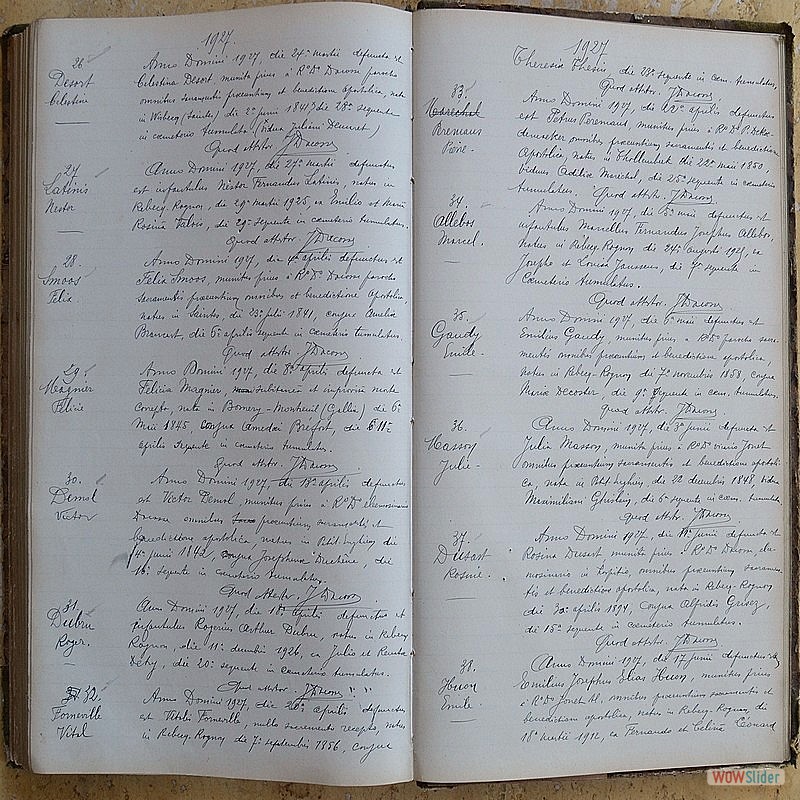 1927.
26.
Desort
Celestine
Anno Domini 1927, die 24ᵃ martii defuncta est
Celestina Desort munita prius a Rᵒ Dᵒ Dacom parocho
omnibus sacramentis praecuntium et benedictione apostolica, nata
in Wisbecq (Saintes) die 2ᵃ junii 1841, die 28ᵃ sequente
in cœmeterio tumulata (vidua Juliani Demuret)
Quod attstor. J Dacom
27
Latinis
Nestor
Anno Domini 1927, die 27ᵃ martii defunctus
est infantulus Nestor Fernandus Latinis, natus in
Rebecq-Rognon, die 29ᵃ martii 1925, ex Emilio et Maria
Rosina Valois, die 29ᵃ sequente in cœmeterio tumulatus.
Quod attstor. J Dacom
28.
Smoos
Felix.
Anno Domini 1927, die 4ᵃ aprilis defunctus est
Felix Smoos, munitus prius a Rᵒ Dᵒ Dacom parocho
sacramentis praecuntium omnibus et benedictione apostolica,
natus in Saintes, die 23ᵃ julii 1841, conjux Amelia
die 6ᵃ aprilis sequente in cœmeterio tumulatus.
Quod attstor. J Dacom
29.
Magnier
Felicie
Anno Domini 1927, die 8ᵃ aprilis defuncta est
Felicia Magnier, subitanea et improvisa morte
correpta, nata in Bonery-Montreuil (Gallia) die 6ᵃ
Maii 1845, conjux Amedei Breifort, die 11ᵃ
aprilis sequente in cœmeterio tumulata.
Quod attstor. J Dacom
30.
Demol
Victor
Anno Domini 1927, die 13ᵃ aprilis defunctus
est Victor Demol, munitus prius a Rᵒ Dᵒ eleemosinario
omnibus praecuntium sacramentis et
benedictione apostolica natus in Petit Enghien, die
4ᵃ junii 1842, conjux Josephinae Duchêne, die
16ᵃ sequente in cœmeterio tumulatus.
Quod attstor. J Dacom
31.
Dubru
Roger.
Anno Domini 1927, die 18ᵃ aprilis defunctus est
infantulus Rogerius Arthur Dubru, natus in Rebecq
Rognon, die 11ᵃ decembris 1926, ex Julio et
Dehy, die 20ᵃ sequente in cœmeterio tumulatus.
Quod attstor. J Dacom
32.
Fomerolle
Vital
Anno Domini 1927, die 20ᵃ aprilis defunctus
est Vitalis Fomerolle, nullo sacramento recepto, natus
in Rebecq-Rognon die 7ᵃ septembris 1856, conjux
1927
Theresia Thesis, die 23ᵃ sequente in cœm. tumulatus.
Quod attstor. J Dacom
33.
Maréchal
Peremans
Pierre.
Anno Domini 1927, die 22ᵃ aprilis defunctus
est Petrus Peremans, munitus prius a Rᵒ Dᵒ P. Deke-
omnibus praecuntium sacramentis et benedictione
Apostolica, natus in Thollembeek die 22ᵃ maii 1850,
viduus Odiliae Maréchal, die 25ᵃ sequente in cœmeterio
tumulatus. Quod attstor. J Dacom
34.
Allebos
Marcel.
Anno Domini 1927, die 5ᵃ maii defunctus est
infantulus Marcellus Fernandus Josephus Allebos,
natus in Rebecq-Rognon die 24ᵃ augusti 1921, ex
Josepho et Louisa Janssens, die 7ᵃ sequente in
Cœmeterio tumulatus.
Quod attstor. J Dacom
35.
Gaudy
Emile.
Anno Domini 1927, die 6ᵃ maii defunctus est
Emilius Gaudy, munitus prius a Rᵒ Dᵒ parocho sacra-
mentis omnibus praecuntium et benedictione apostolica,
natus in Rebecq-Rognon die 7ᵃ novembris 1858, conjux
Maria Decoster, die 9ᵃ sequente in cœm. tumulatus.
Quod attstor. J Dacom
36.
Masson
Julie.
Anno Domini 1927, die 3ᵃ junii defuncta est
Julia Masson, munita prius a Rᵒ Dᵒ vicario Jonet
omnibus praecuntium sacramentis et benedictione apostoli-
ca, nata in Petit-Enghien, die 22 decembris 1848, vidua
Maximiliani Ghislain, die 6ᵃ sequente in cœm. tumulata
Quod attstor. J Dacom
37.
Dusart
Rosine.
Anno Domini 1927, die 11ᵃ junii defuncta est
Rosina Dusart munita prius a Rᵒ Dᵒ Dacom, elee-
mosinario in hospitio, omnibus praecuntium sacramen-
tis et benedictione apostolica, nata in Rebecq-Rognon
die 30ᵃ aprilis 1894, conjux Alfridis Grisez,
die 15ᵃ sequente in cœmeterio tumulatus.
Quod attstor. J Dacom
38.
Huon
Emile.
Anno Domini 1927, die 17 junii defunctus est
Emilius Josephus Elias Huon, munitus prius
a Rᵒ Dᵒ Jonet omnibus praecuntium sacramentis et
benedictione apostolica, natus in Rebecq-Rognon die
18ᵃ martii 1912, ex Fernando et Celina Léonard
WOWSlider